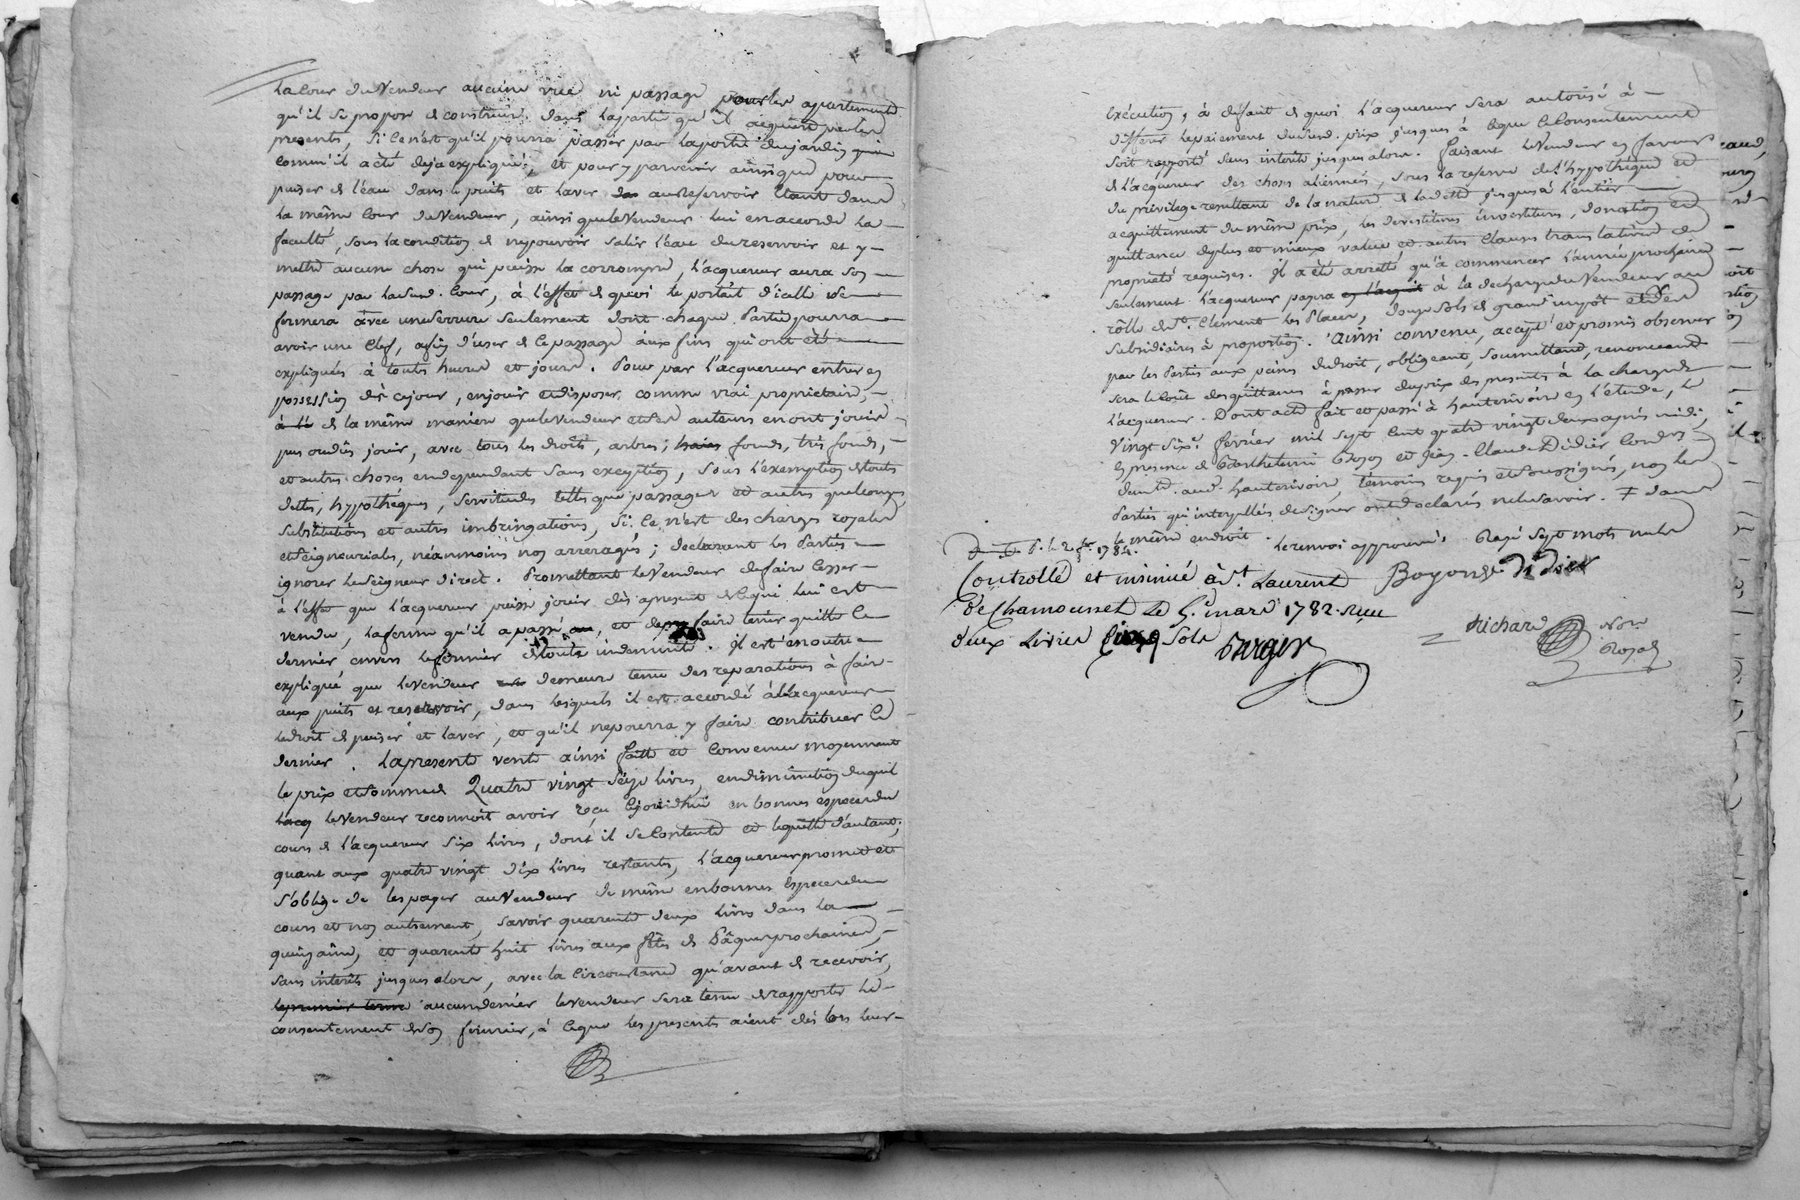 la cour du Vendeur aucune vue ni passage pour les appartements
qu'il se propose de construire dans la partie qu'il acquiert par les
presentes, si ce n'est qu'il pourra passer par la porte du jardin
comm'il a été deja expliqué; et pour y parvenir ainsi que pour
puiser de l'eau dans le puits et laver au reservoir étant dans
la même cour du Vendeur, ainsi que le Vendeur lui en accorde la
faculté, sous la condition de ne pouvoir salir l'eau du reservoir et y
mettre aucune chose qui puisse la corrompre, l'acquereur aura son
passage par lad. cour, à l'effet de quoi le portail d'icelle se
fermera avec une serrure seulement dont chaque Partie pourra
avoir une clef, afin d'user de ce passage aux fins qui ont été
expliquées à toute heure et jours. Pour par l'acquereur entrer en
possession dès ce jour, en jouir et disposer comme vrai proprietaire,
de la même maniere que le Vendeur et ses auteurs en ont joui
pu ou dû jouir, avec tous les droits, arbres, fonds, très fonds,
et autres choses en dependant sans exception, sous l'exemption de touts
dettes, hypothéques, servitudes telles que passages et autres quelconques
substitutions et autres imbringations, si ce n'est des charges royales
et seigneuriales, néanmoins non arreragés; declarant les Parties
ignorer le seigneur direct. Promettant le Vendeur de faire cesser
à l'effet que l'acquereur puisse jouir dès apresent de ce qui lui est
vendu, la ferme qu'il a passé, et de faire tenir quitte ce
dernier envers le fermier de toute indemnité. Il est en outre
expliqué que le Vendeur demeure tenu des reparations à faire
aux puits et reservoir, dans lesquels il est accordé à l'acquereur
le droit de puiser et laver, et qu'il ne pourra y faire contribuer ce
dernier. La presente vente ainsi faite et convenue moyennant
le prix et somme de Quatre vingt seize livres, en diminution duquel
le Vendeur reconnoit avoir reçu cejourd'hui en bonnes especes du
cours de l'acquereur six livres, dont il se contente et le quitte d'autant;
quant aux quatre vingt dix livres restants, l'acquereur promet et
s'oblige de les payer au Vendeur de même en bonnes Especes du
cours et non autrement, savoir quarante deux livres dans la
quinzaine, et quarante huit livres aux fêtes de Pâques prochaines,
sans intérêts jusques alors, avec la circonstance qu'avant de recevoir,
le premier terme aucun denier le vendeur sera tenu de rapporter le
consentement de son fermier, à ce que les presentes aient dès lors leur
exécution, à défaut de quoi l'acquereur sera autorisé à
differer le paiement dud. prix jusques à ce que le consentement
soit rapporté sans interêt jusques alors. faisant le Vendeur en faveur
de l'acquereur des choses aliennées, sous la reserve de l'hypothèque et
du privilege resultant de la nature de la dette jusques à l'entier
acquittement du même prix, les devestitures investitures, donation et
quittance de plus et mieux value et autres clauses translatives de
propriété requises. Il a été arrêté qu'à commencer l'année prochaine
seulement l'acquereur payera à la decharge du Vendeur au
rôlle de St. Clement les Places, douze sols de grand impôt et des
subsidiaires à proportion. Ainsi convenu, accepté et promis observer
par les Parties aux peines du droit, obligeant, soumettant, renonceant
sera le coût des quittances à passer du prix des presentes à la charge de
l'acquereur. Dont acte fait et passé à hauterivoire en l'étude, le
Vingt six. février mil sept cent quatre vingt deux après midi,
en presence de Barthelemi Boyon et Jean-Claude Didier
dud. hauterivoire, temoins requis et soussignés, non les
Parties qui interpellées de signer ont declarés ne le savoir. ≠ dans
le même endroit. le renvoi approuvé. Rayé sept mots nuls
Boyon Didier
Controllé et insinué à St. Laurent
de Chamousset le 5. mars 1782. reçu
deux Livres cinq sols Varger
Richard Nore
Royal